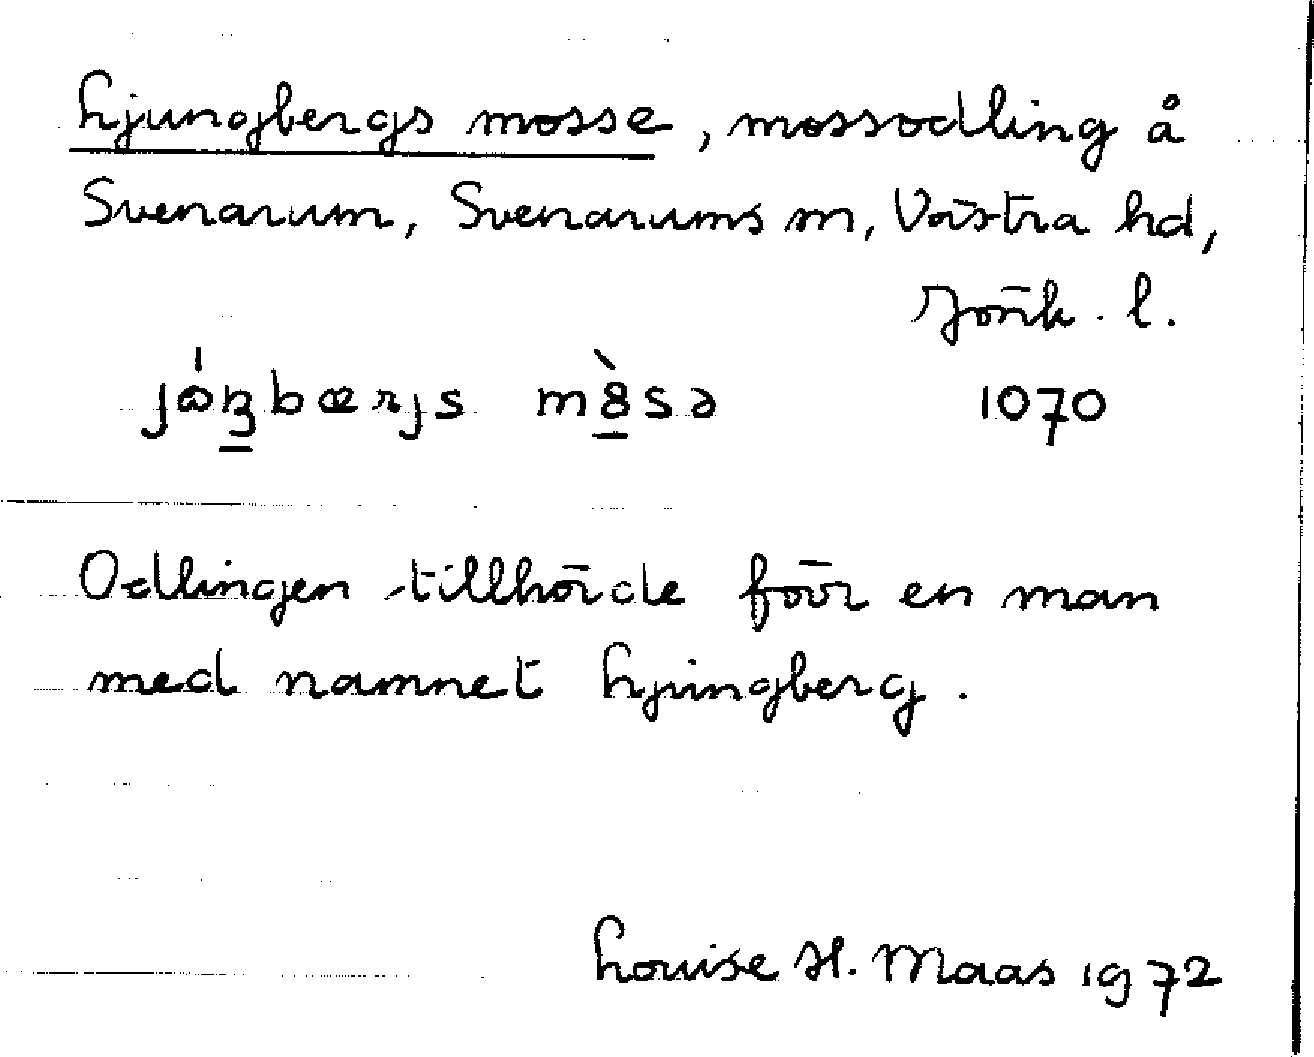 Ljungbergs mosse, mossodling å
Svenarum, Svenarums sn, Västra hd,
Jönk. l.
1070
Odlingen tillhörde förr en man
med namnet Ljungberg.
Louise H. Maas 1972